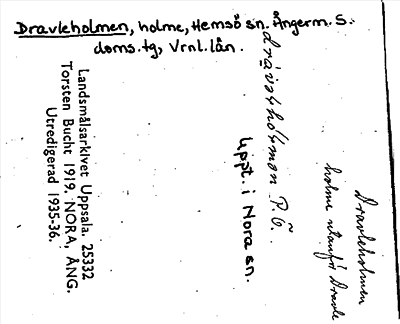 Dravleholmen, holme, Hemsö sn. Ångerm. S.
doms.tg, Vrnl.län.
Landsmålsarkivet Uppsala. 25332
Torsten Bucht 1919. NORA, ÅNG.
Utredigerad 1935-36.
P. Ö.
Uppt. i Nora sn.
Dravleholmen
holme utanför Dravle